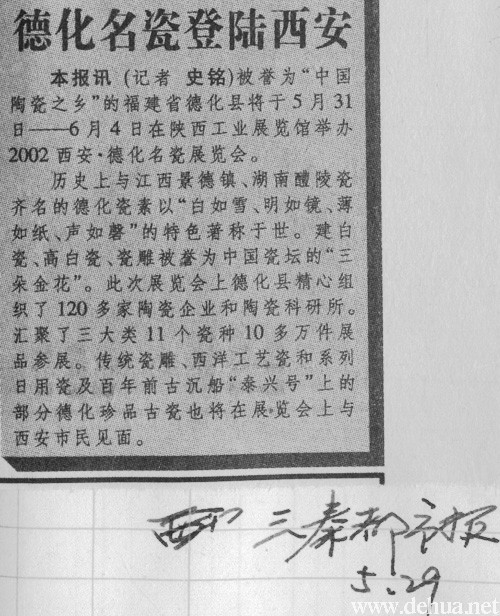 德化名瓷登陆西安
本报讯 (记者 史铭)被誉为“中国
陶瓷之乡”的福建省德化县将于5月31
日——6月4日在陕西工业展览馆举办
2002西安·德化名瓷展览会。
历史上与江西景德镇、湖南醴陵瓷
齐名的德化瓷素以“白如雪、明如镜、薄
如纸、声如磬”的特色著称于世。建白
瓷、高白瓷、瓷雕被誉为中国瓷坛的“三
朵金花”。此次展览会上德化县精心组
织了120多家陶瓷企业和陶瓷科研所。
汇聚了三大类11个瓷种10多万件展
品参展。传统瓷雕、西洋工艺瓷和系列
日用瓷及百年前古沉船“泰兴号”上的
部分德化珍品古瓷也将在展览会上与
西安市民见面。
三秦都市报
5.29
www.dehua.net